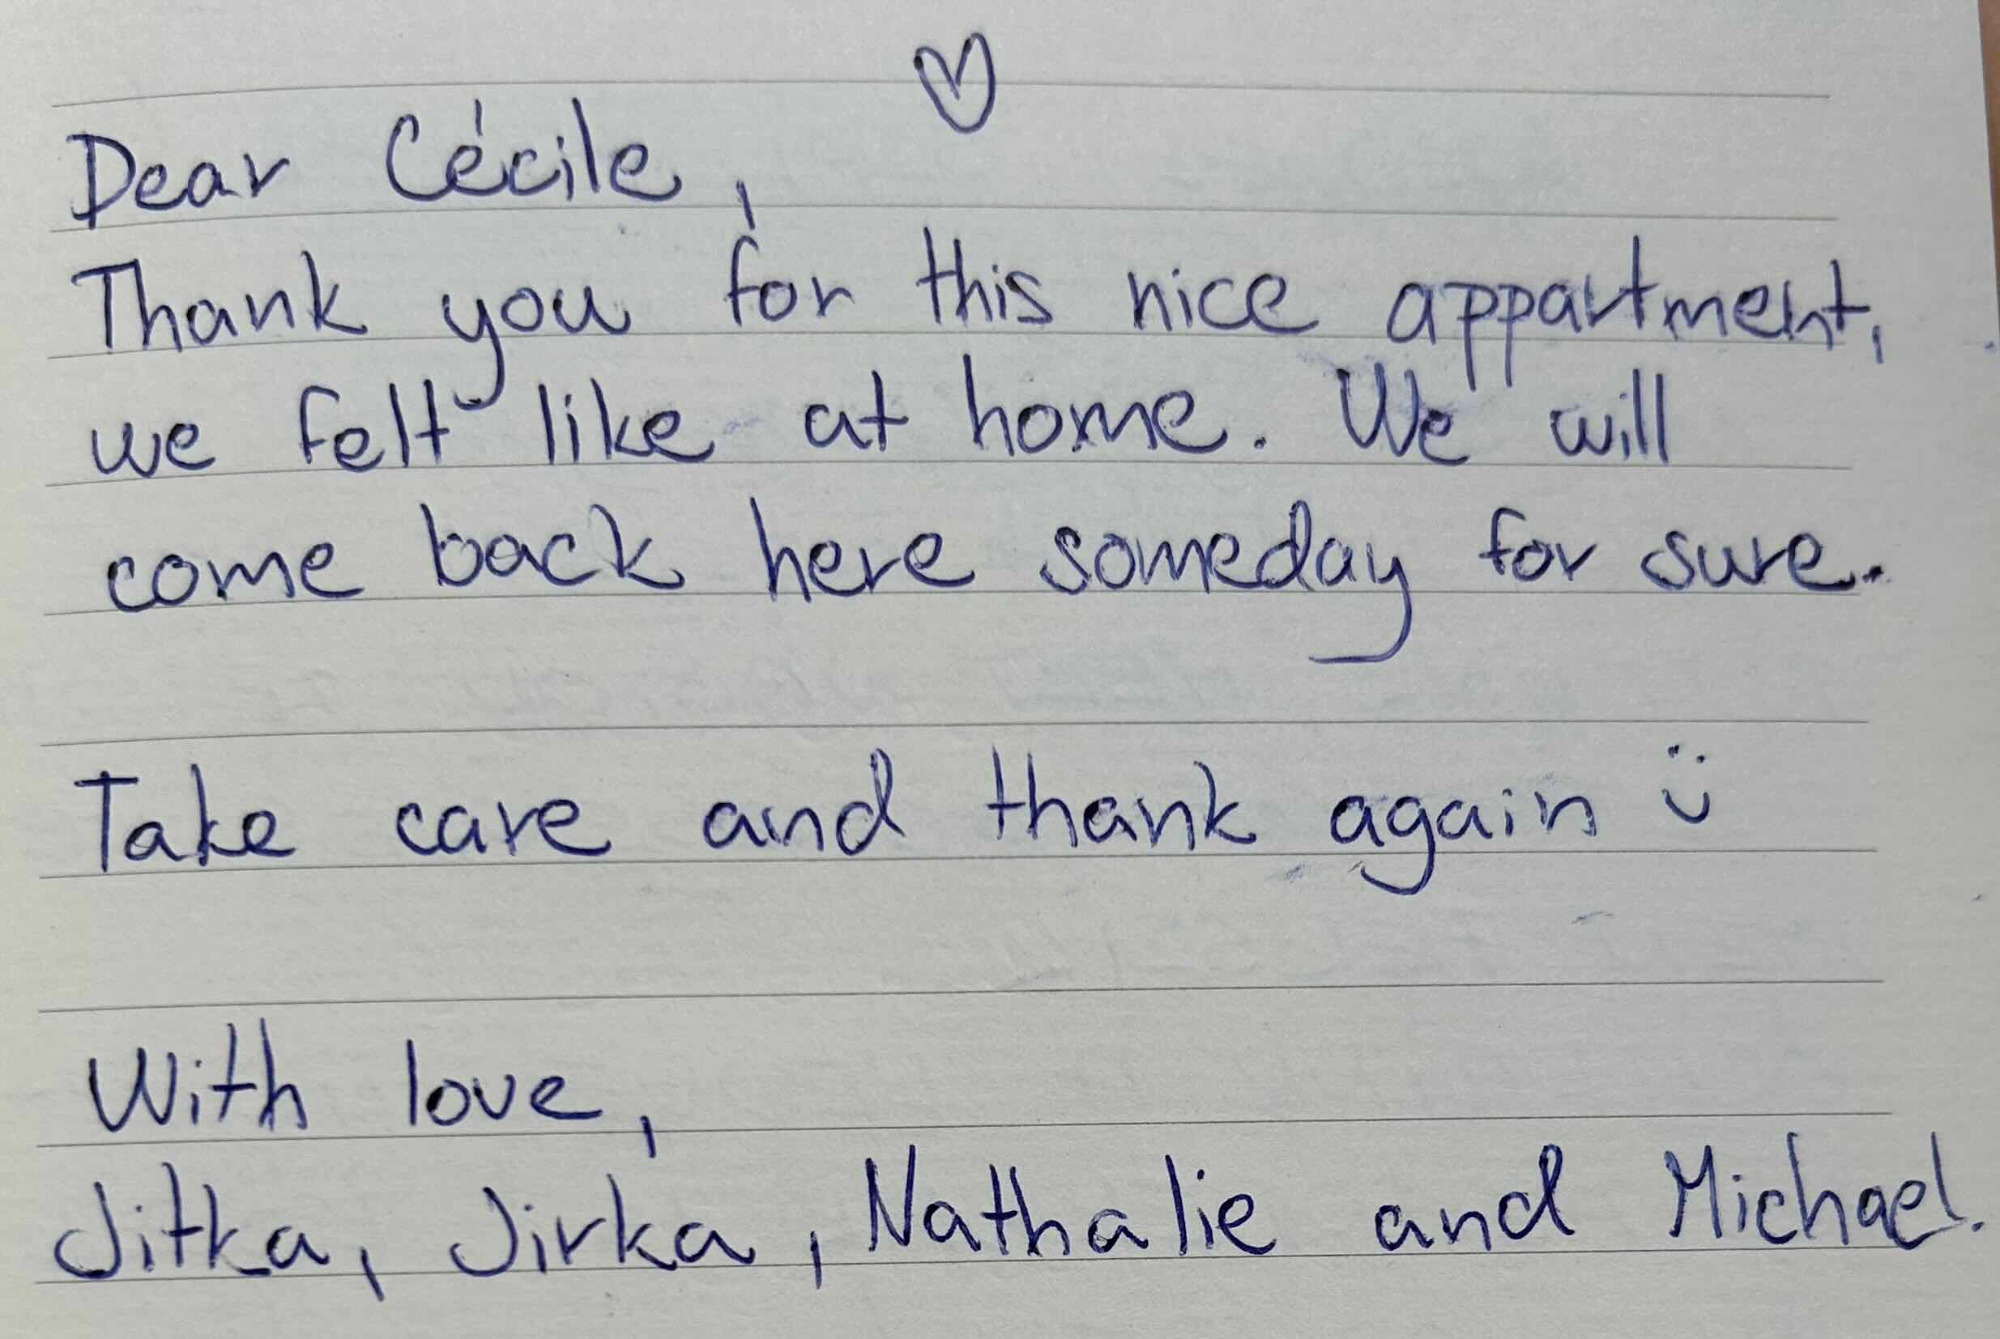 Dear Cécile, ♡
Thank you for this nice appartment,
we felt like at home. We will
come back here someday for sure.
Take care and thank again ü
With love,
Jitka, Jirka, Nathalie and Michael.